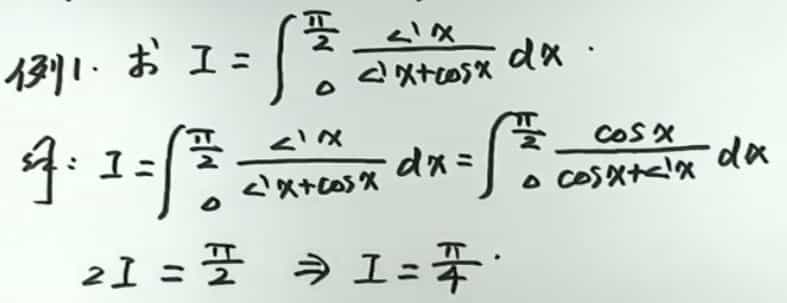 例1. 求 I = ∫_0^{π/2} sin x / (sin x + cos x) dx.
解: I = ∫_0^{π/2} sin x / (sin x + cos x) dx = ∫_0^{π/2} cos x / (cos x + sin x) dx
2I = π/2 ⇒ I = π/4.